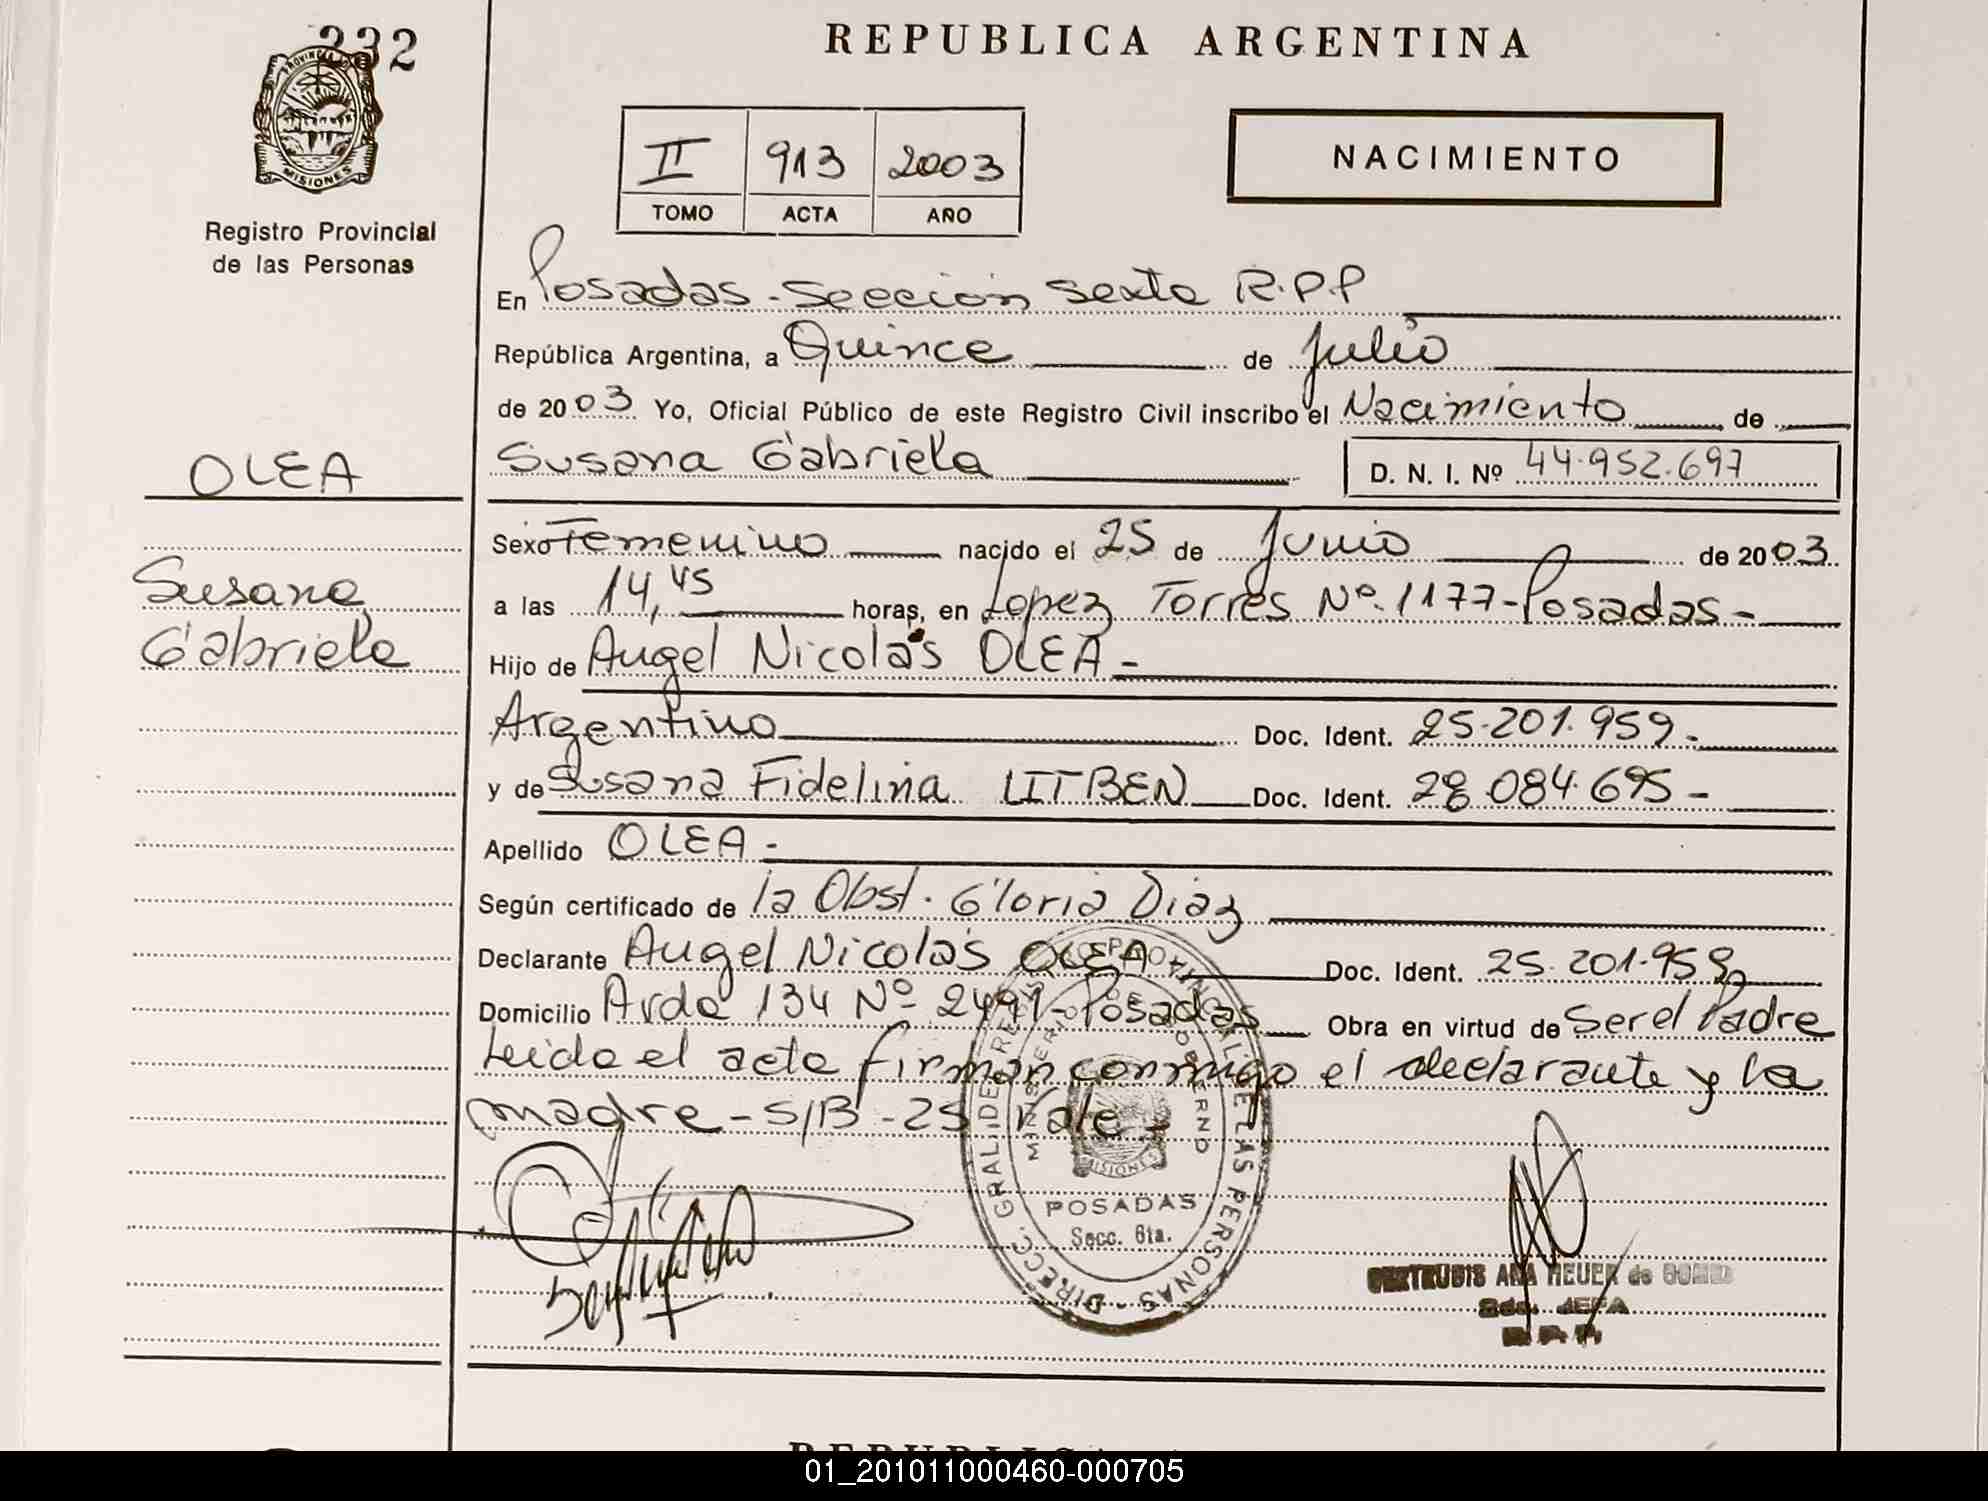 232
REPUBLICA ARGENTINA
PROVINCIA DE MISIONES
Registro Provincial
de las Personas
II 913 2003
TOMO ACTA AÑO
NACIMIENTO
En Posadas - Sección Sexta R.P.P
República Argentina, a Quince de Julio
de 2003 Yo, Oficial Público de este Registro Civil inscribo el Nacimiento de
Susana Gabriela D. N. I. Nº 44.952.697
OLEA
Susana
Gabriela
Sexo Femenino nacido el 25 de Junio de 2003
a las 14,45 horas, en Lopez Torres Nº 1177 - Posadas -
Hijo de Angel Nicolás OLEA -
Argentino Doc. Ident. 25.201.959 -
y de Susana Fidelina LITBEN Doc. Ident. 28.084.695 -
Apellido OLEA -
Según certificado de la Obst. Gloria Diaz
Declarante Angel Nicolás OLEA Doc. Ident. 25.201.959
Domicilio Avda 134 Nº 2491 - Posadas Obra en virtud de Ser el Padre
Leida el acta firman conmigo el declarante y la
madre - S/B - 25 Vale -
DIRECC. GRAL. DE REG. PROVINCIAL DE LAS PERSONAS
MINISTERIO DE GOBIERNO
MISIONES
POSADAS
Secc. 6ta.
GERTRUDIS ANA HEUER de GOMEZ
2da. JEFA
R.P.P.
REPUBLICA
01_201011000460-000705